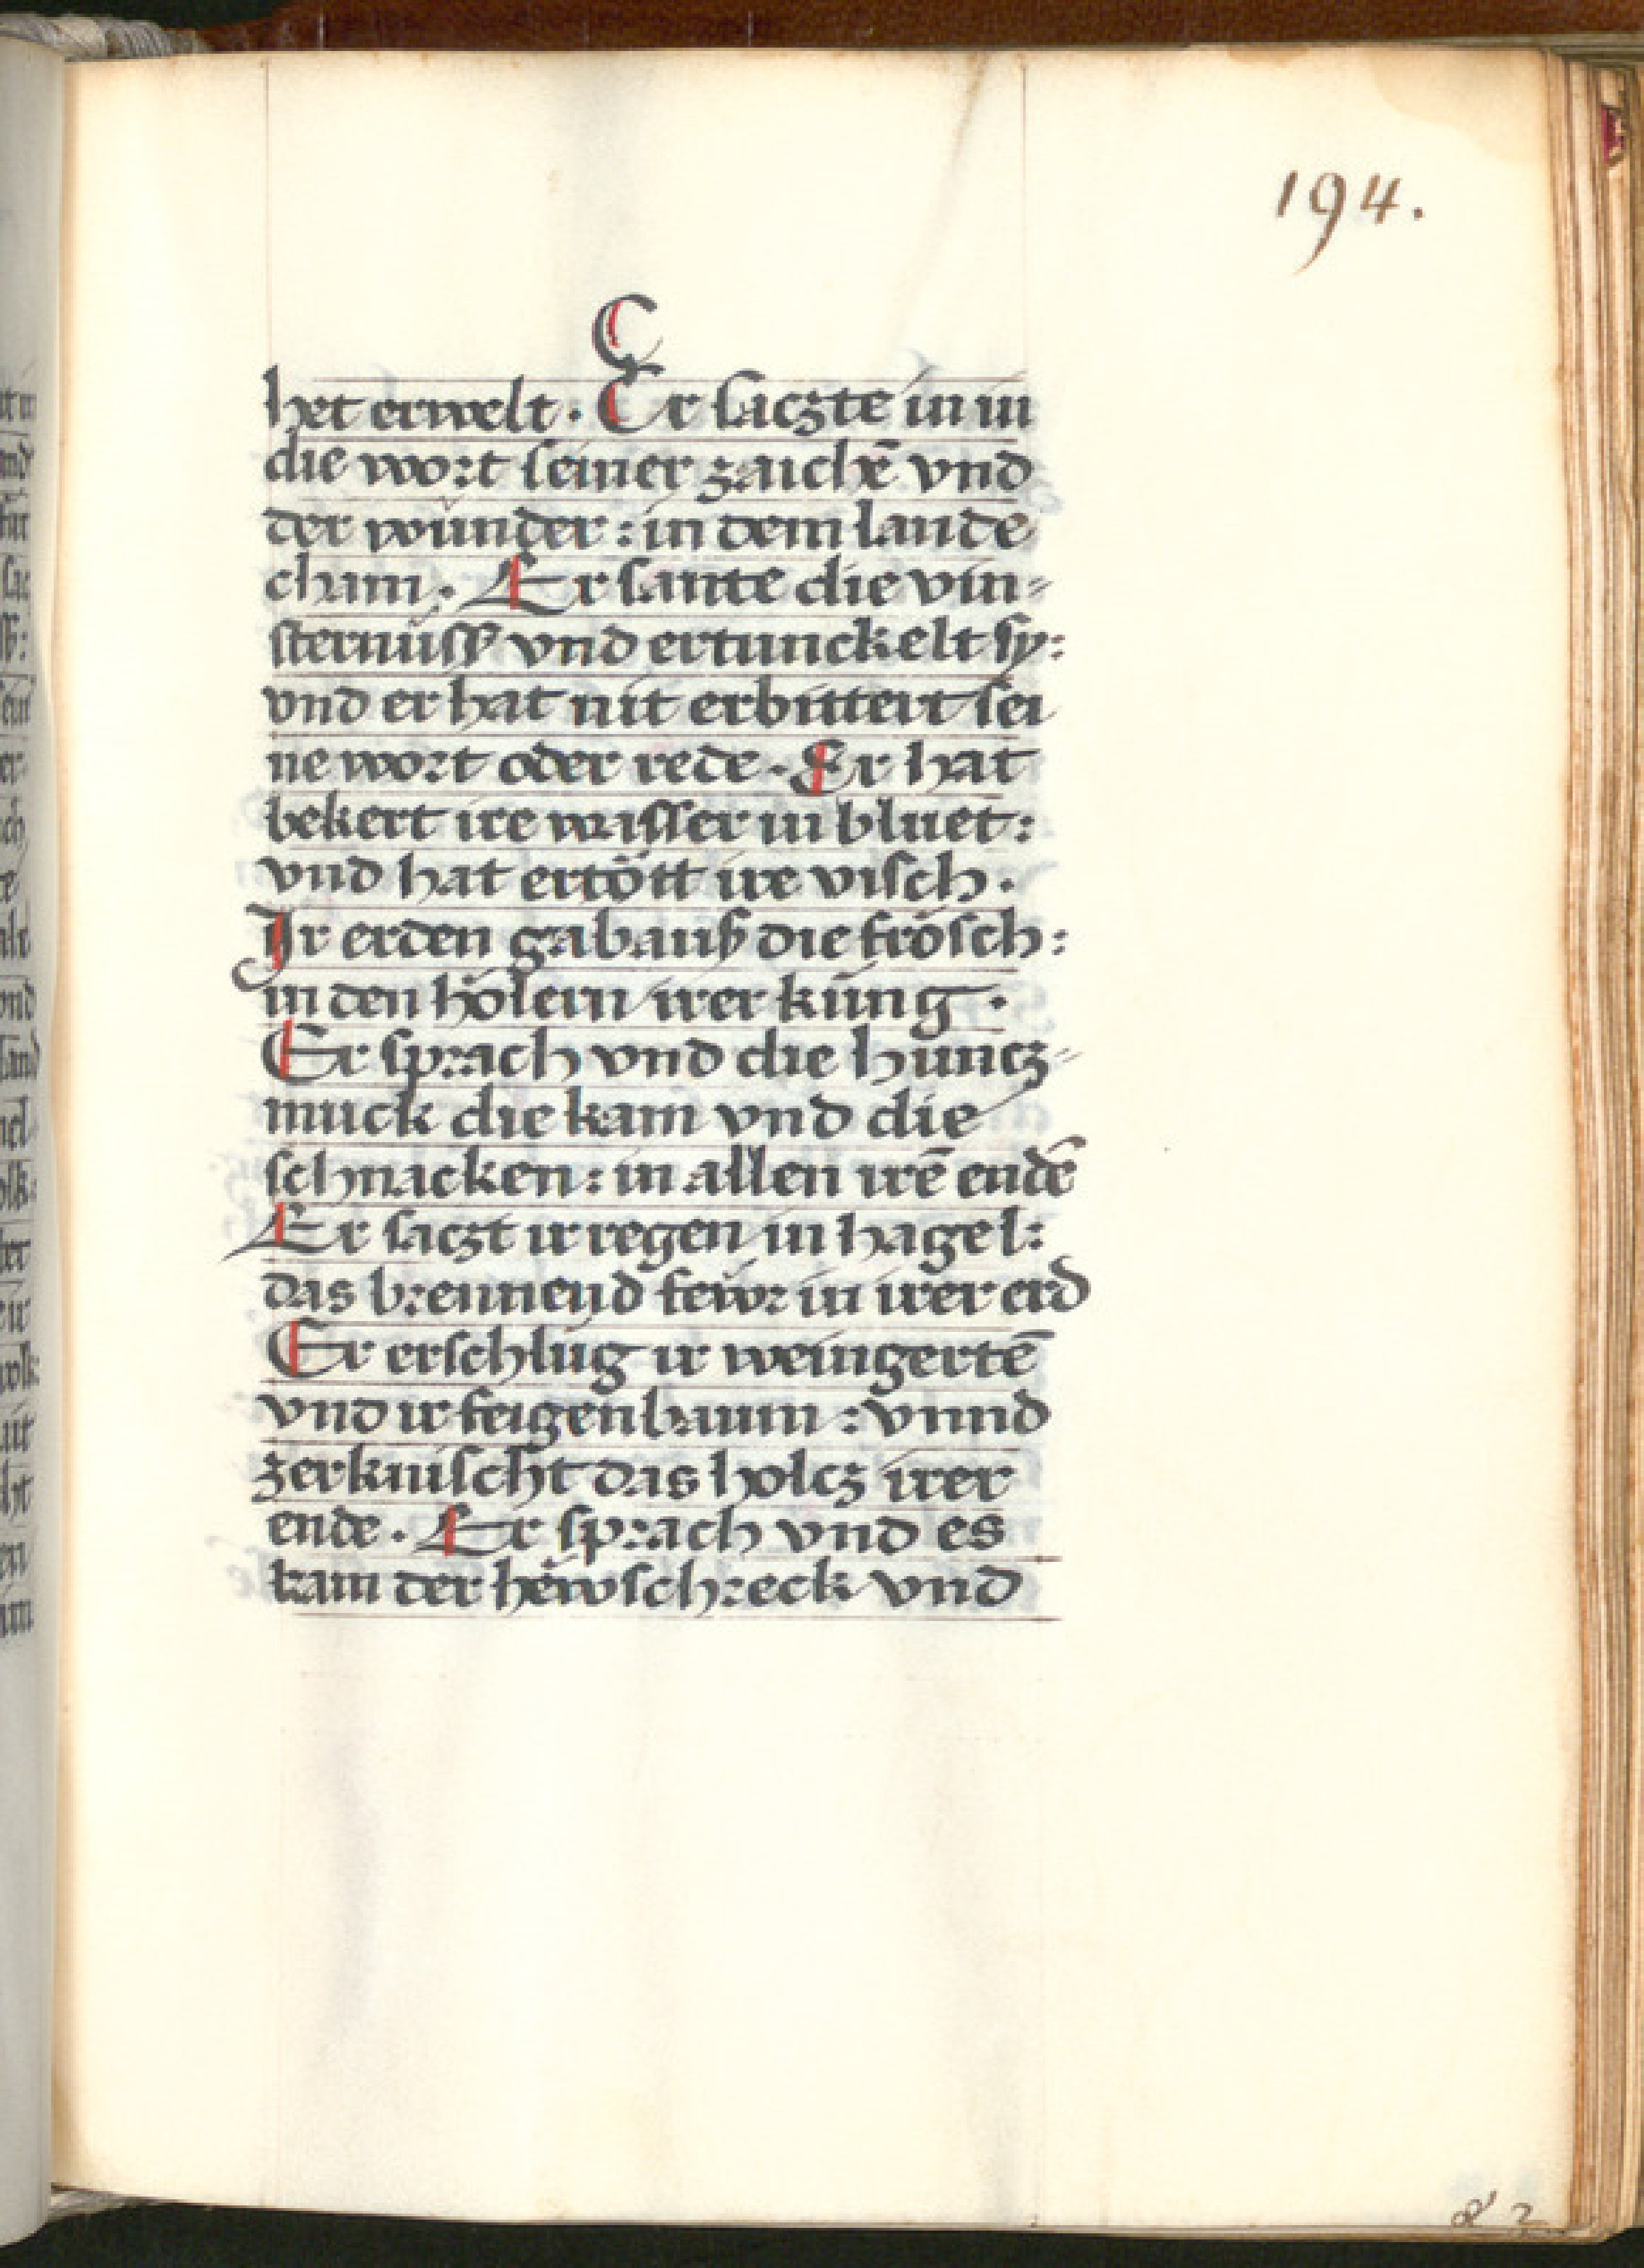 194.
C
het erwelt. Er saczte in in
die wort seiner zaichē vnd
der wunder: in dem lande
cham. Er sante die vin-
sternüss vnd ertunckelt sy:
vnd er hat nit erbittert sei
ne wort oder rede. Er hat
bekert ire wasser in bluet:
vnd hat ertött ire visch.
Ir erden gab auß die frösch:
in den hölern irer küng.
Er sprach vnd die huncz-
muck die kam vnd die
schnacken: in allen irē endē
Er saczt ir regen in hagel:
das brennend fewr in irer erd
Er erschlug ir weingertē
vnd ir feigenbaum: vnnd
zerknischt das holcz irer
ende. Er sprach vnd es
kam der hëwschreck vnd